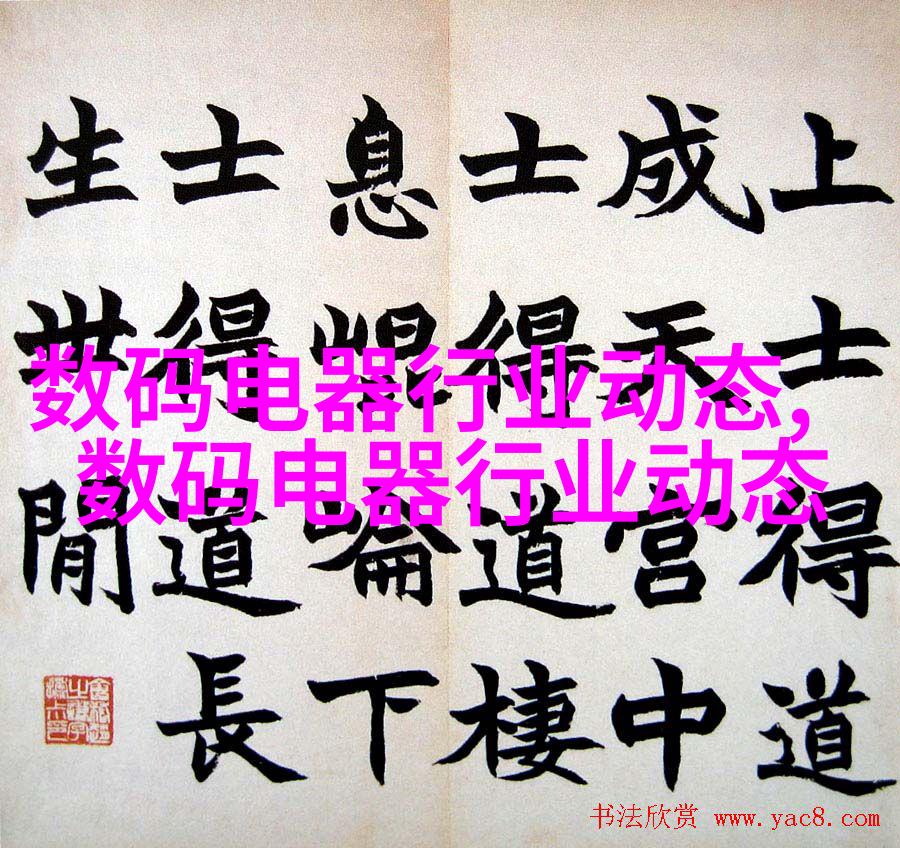 上士得道
成天宮中
士得道棲
息崐崘下
士得道長
生世閒
数码电器行业动态,
数码电器行业动态
书法欣赏 www.yac8.com